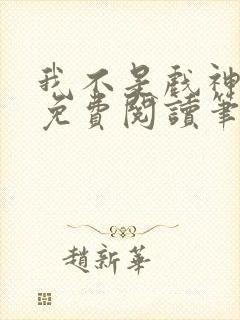 我不是戏神
免費閱讀筆
趙新華